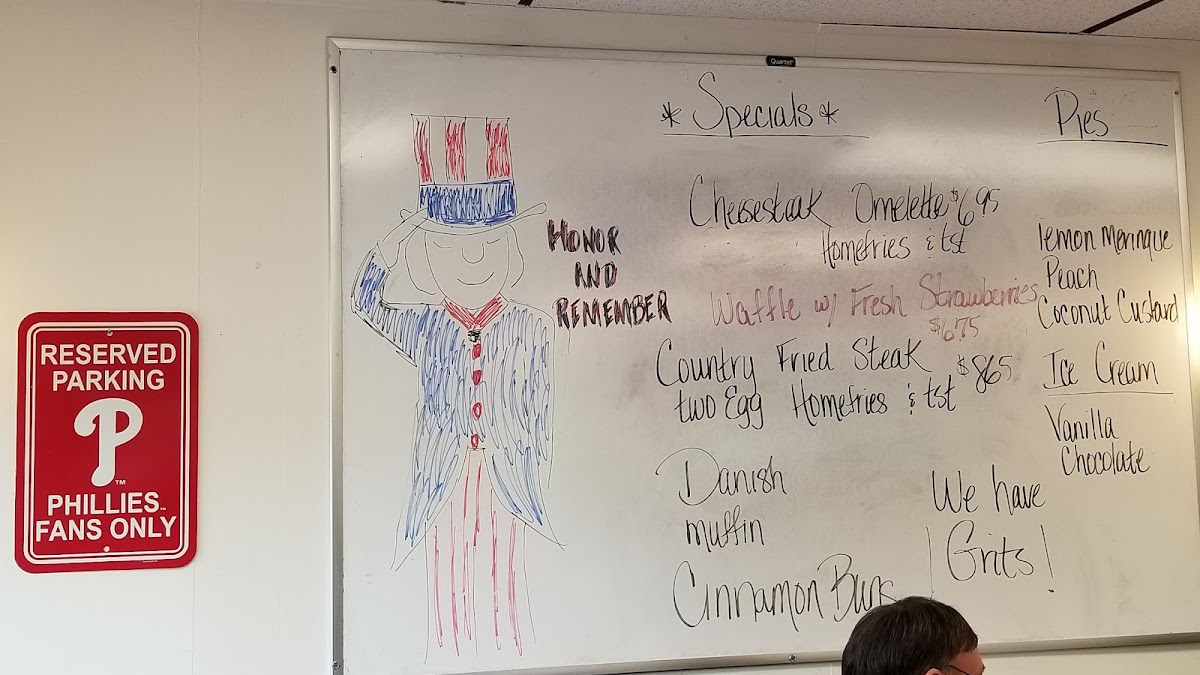 RESERVED
PARKING
P
TM
PHILLIES
FANS ONLY
HONOR
AND
REMEMBER
Quartet
* Specials *
Cheesesteak Omelette $6.95
Homefries & tst
Waffle w/ Fresh Strawberries
$6.75
Country Fried Steak $8.65
two Egg Homefries & tst
Danish
muffin
Cinnamon Buns
We have
Grits!
Pies
lemon Meringue
Peach
Coconut Custard
Ice Cream
Vanilla
Chocolate